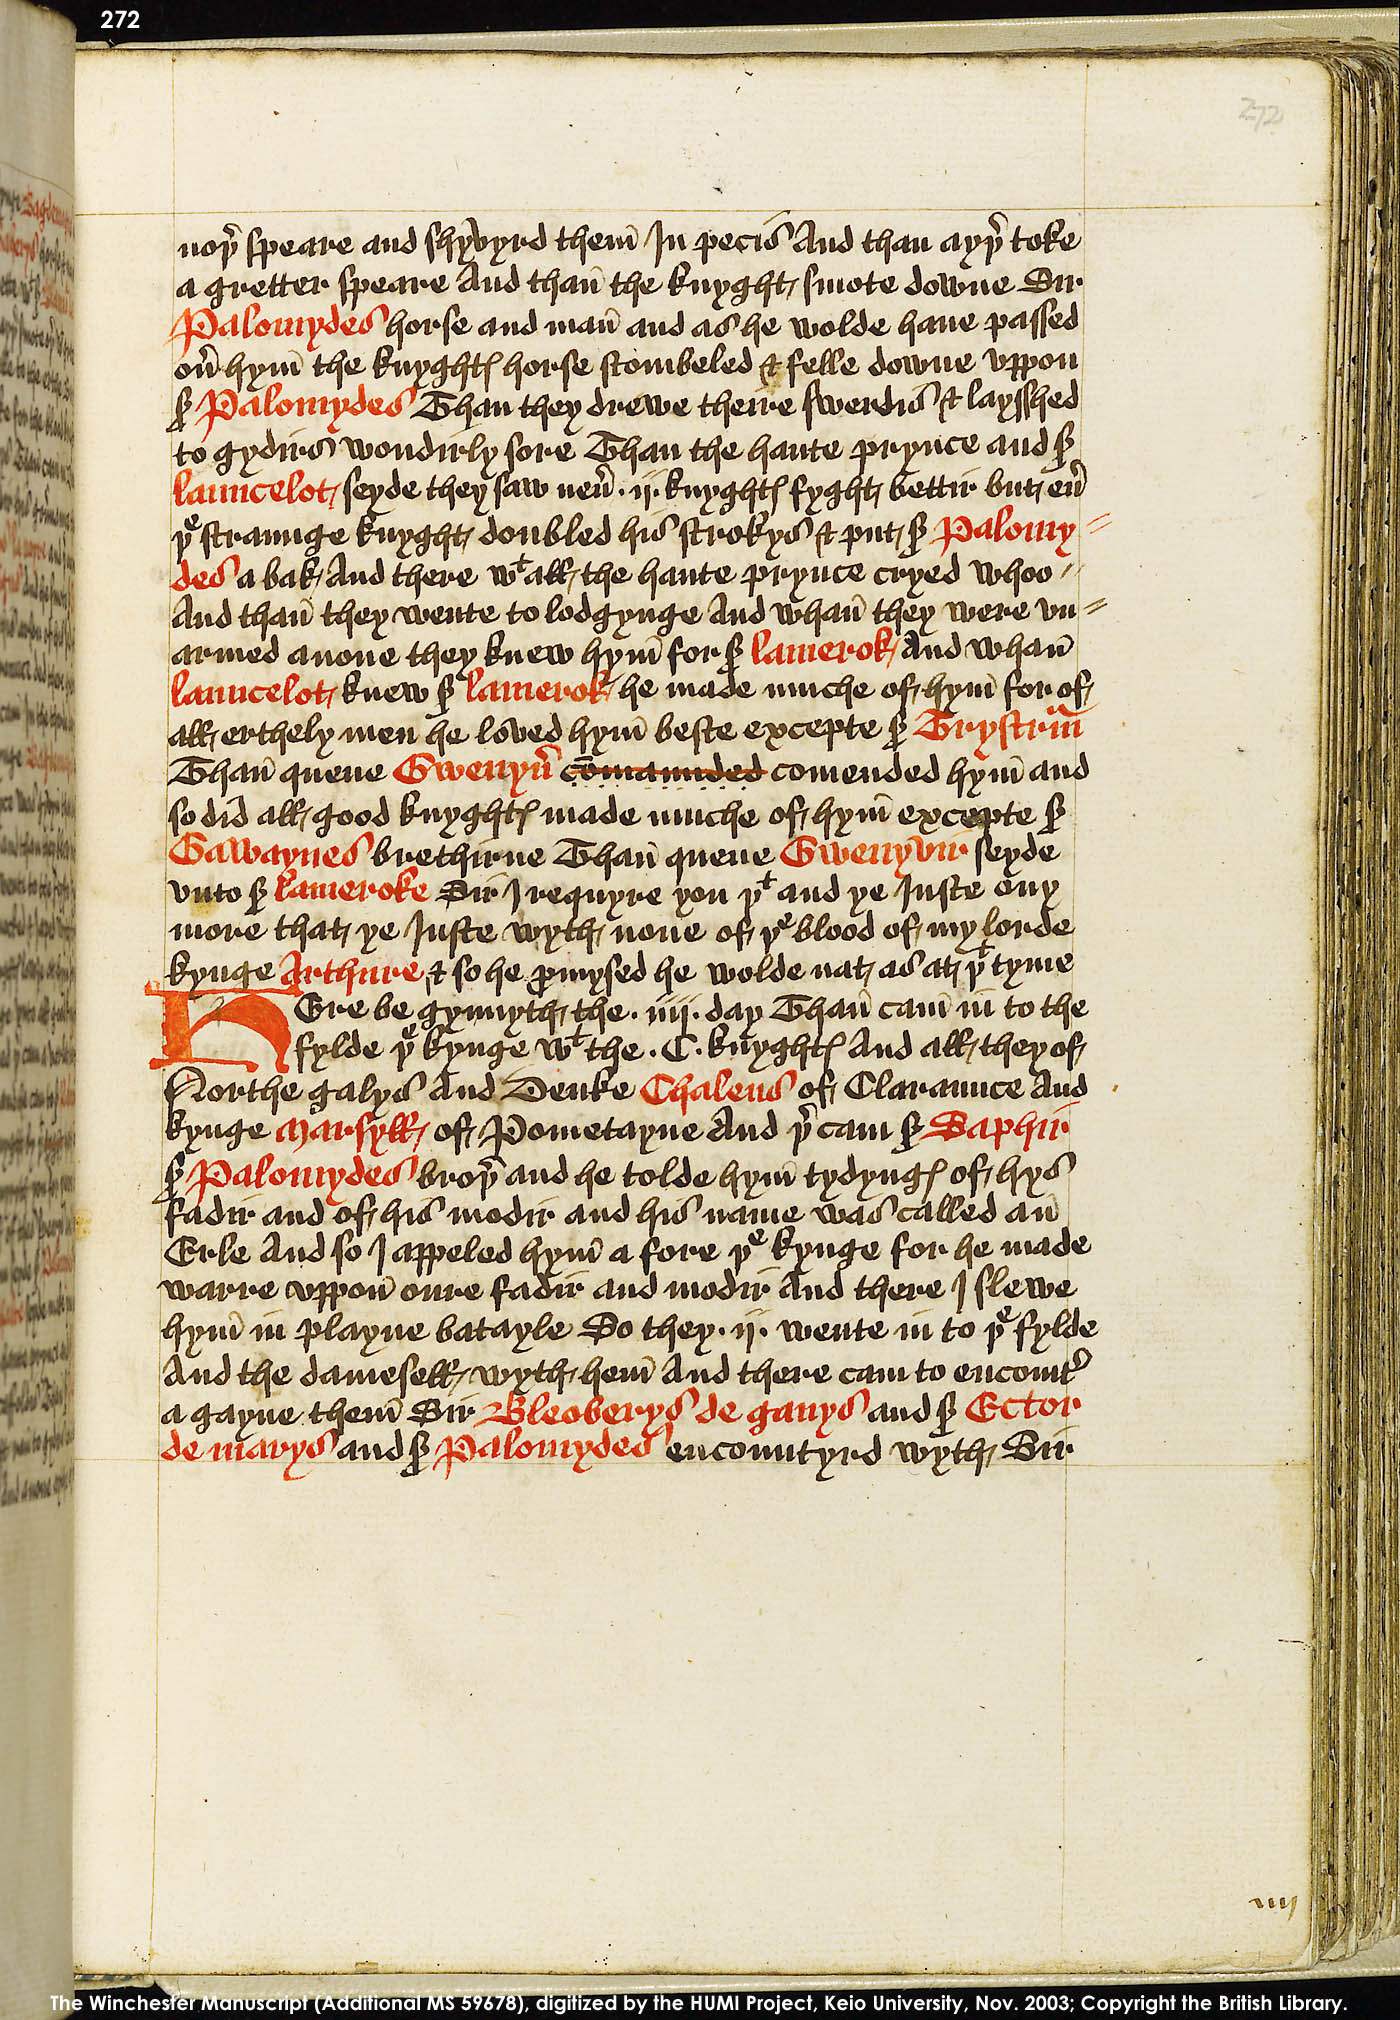 272
272
noþ͛ speare and shyvyrd them̄ In pecis And than ayþ͛ toke
a gretter speare And than̄ the knyght smote downe Sir
Palomydes horse and man̄ and as he wolde haue passed
ou͛ hym̄ the knyghtꝭ horse stombeled & felle downe vppon
s͛ Palomydes Than they drewe theire swerdis & laysshed
to gydirs wondirly sore Than the haute prynce and s͛
launcelot seyde they saw neu͛ .ij. knyghtꝭ fyght bettir but eu͛
þᵉ straunge knyght doubled his strokys & put s͛ Palomy〃
des a bak And there wᵗ all the haute prynce cryed whoo〃
And than̄ they wente to lodgynge And whan̄ they were vn〃
armed anone they knew hym̄ for s͛ lamerok And whan̄
launcelot knew s͛ lamerok he made muche of hym̄ for of
all erthely men he loved hym̄ beste excepte s͛ Trystrᵃm
Than̄ quene Gwenyu͛ com̄aunded comended hym̄ and
so did all good knyghtꝭ made muche of hym̄ excepte s͛
Gawaynes brethirne Than̄ quene Gwenyvir seyde
vnto s͛ lameroke Sir I requyre you þᵗ and ye Iuste ony
more that ye Iuste wyth none of þᵉ blood of my lorde
kynge Arthure & so he ꝓmysed he wolde nat as at þᵗ tyme
HEre be gynnyth the .iiij. day Than̄ cam̄ in̄ to the
fylde þᵉ kynge wᵗ the .C. knyghtꝭ And all they of
Northe galys And Deuke Chaleus of Claraunce And
kynge Marsyll of Pometayne And þ͛ cam s͛ Saphir
s͛ Palomydes broþ͛ and he tolde hym̄ tydyngꝭ of hys
fadir and of his modir and his name was called an̄
Erle And so I appeled hym̄ a fore þᵉ kynge for he made
warre vppon̄ oure fadir and modir And there I slewe
hym̄ in playne batayle So they .ij. wente in to þᵉ fylde
And the damesell wyth hem̄ And there cam to encount͛
a gayne them̄ Sir Bleoberys de ganys and s͛ Ector
de marys and s͛ Palomydes encountyrd wyth Sir
iiij
The Winchester Manuscript (Additional MS 59678), digitized by the HUMI Project, Keio University, Nov. 2003; Copyright the British Library.